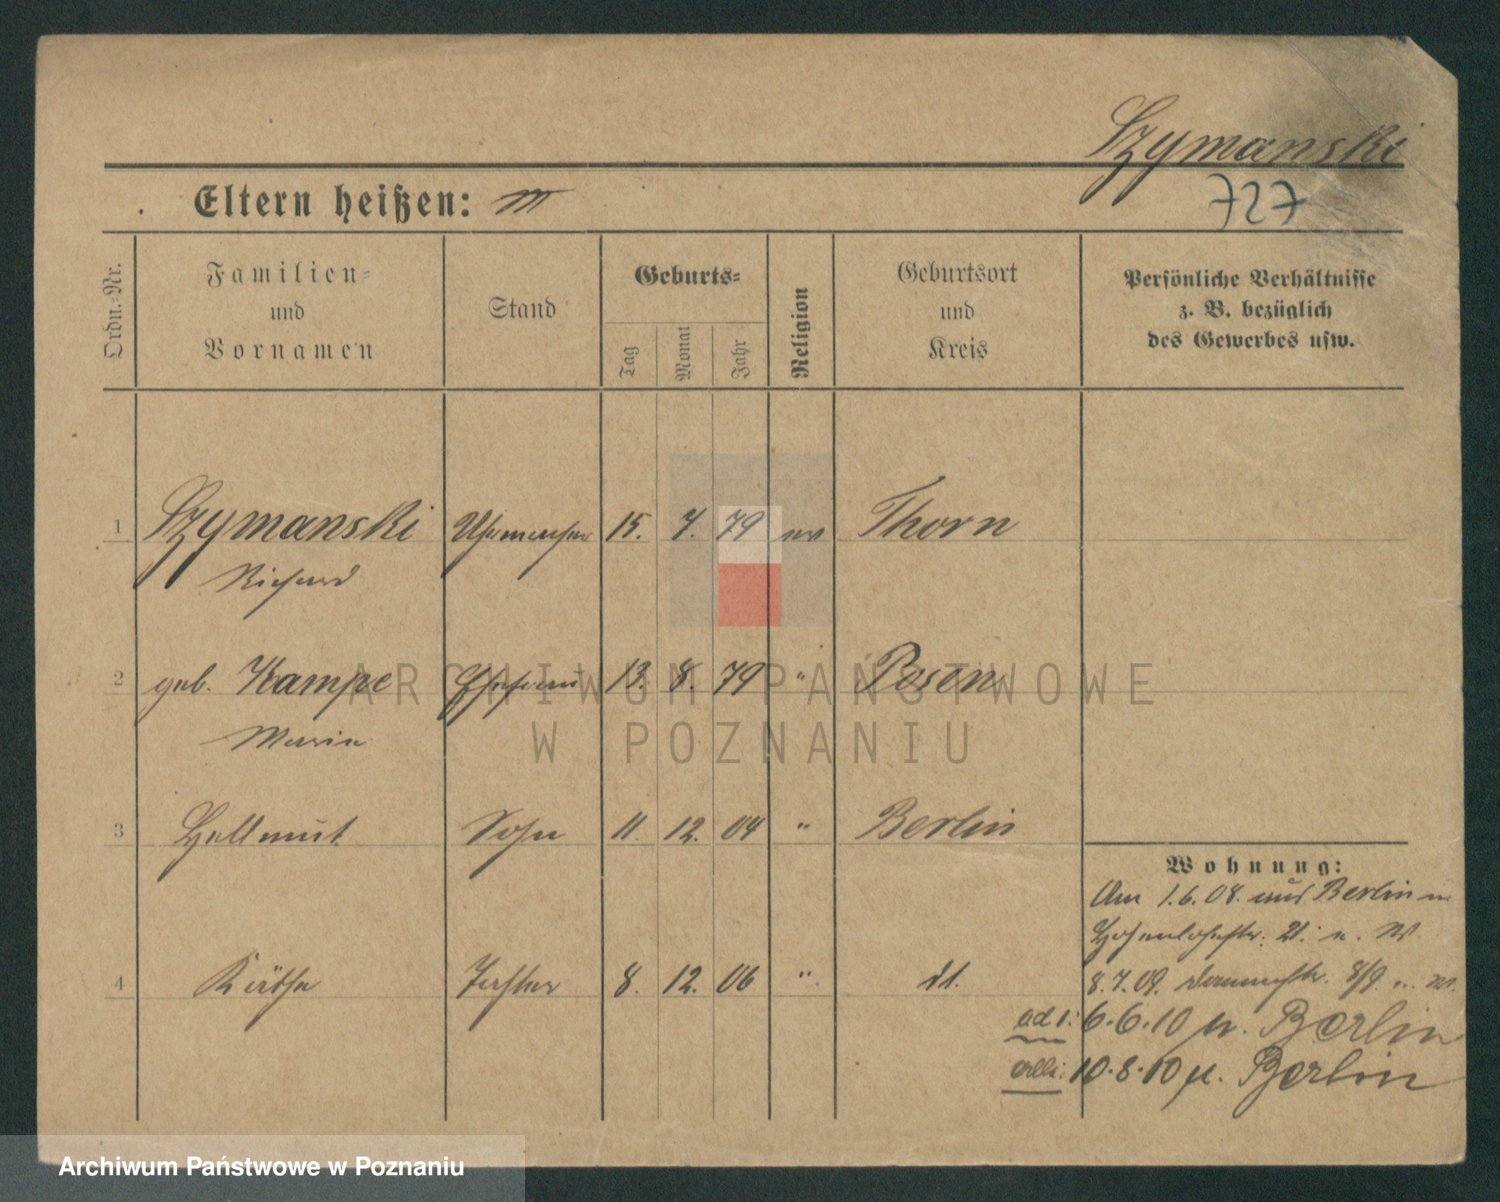 Szymanski
Eltern heißen:
727
Ordn.-Nr.
Familien-
und
Vornamen
Stand
Geburts-
Tag
Monat
Jahr
Religion
Geburtsort
und
Kreis
Persönliche Verhältnisse
z. B. bezüglich
des Gewerbes usw.
1 Szymanski Uhrmacher 15. 7. 79 ev Thorn
Richard
2 geb. Kampe Ehefrau 13. 8. 79 " Posen
Maria
ARCHIWUM PAŃSTWOWE
W POZNANIU
3 Hellmut Sohn 11. 12. 04 " Berlin
Wohnung:
Am 1.6.08. aus Berlin n
Hohenlohestr. 21. n. W.
4 Käthe Tochter 8. 12. 06 " dt.
8.7.09. 8/9. n. W.
ad 1: 6.6.10 n. Berlin
alle: 10.8.10 n. Berlin
Archiwum Państwowe w Poznaniu